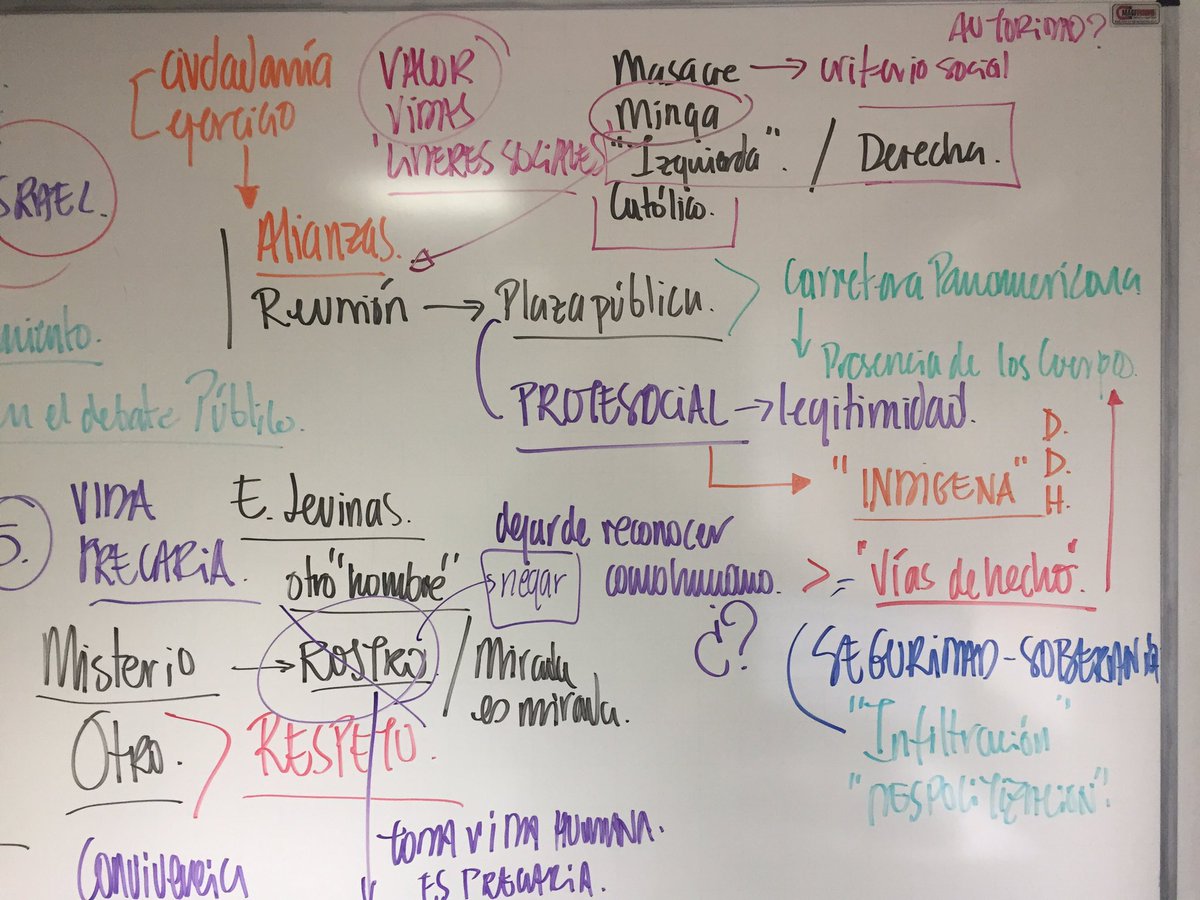 AUTORIDAD?
ciudadanía
ejercicio
VALOR
VIDAS
"LIDERES SOCIALES"
Masacre → criterio social
Minga
"Izquierda". / Derecha.
Católico.
SRAEL.
Alianzas.
Reunión → Plaza pública.
Carretera Panamericana
Presencia de los Cuerpos.
miento.
en el debate Público.
PROTESOCIAL → legitimidad.
"INDÍGENA"
D.
D.
H.
5.
VIDA
PRECARIA.
E. Levinas.
otro "hombre"
dejar de reconocer
negar
como humano. > = "Vías de hecho".
¿?
Misterio → ROSTRO / Mirada
es mirada.
Otro.
RESPETO.
SEGURIDAD - SOBERANÍA
"Infiltración"
"DESPOLITIZACION".
Convivencia
TODA VIDA HUMANA.
ES PRECARIA.